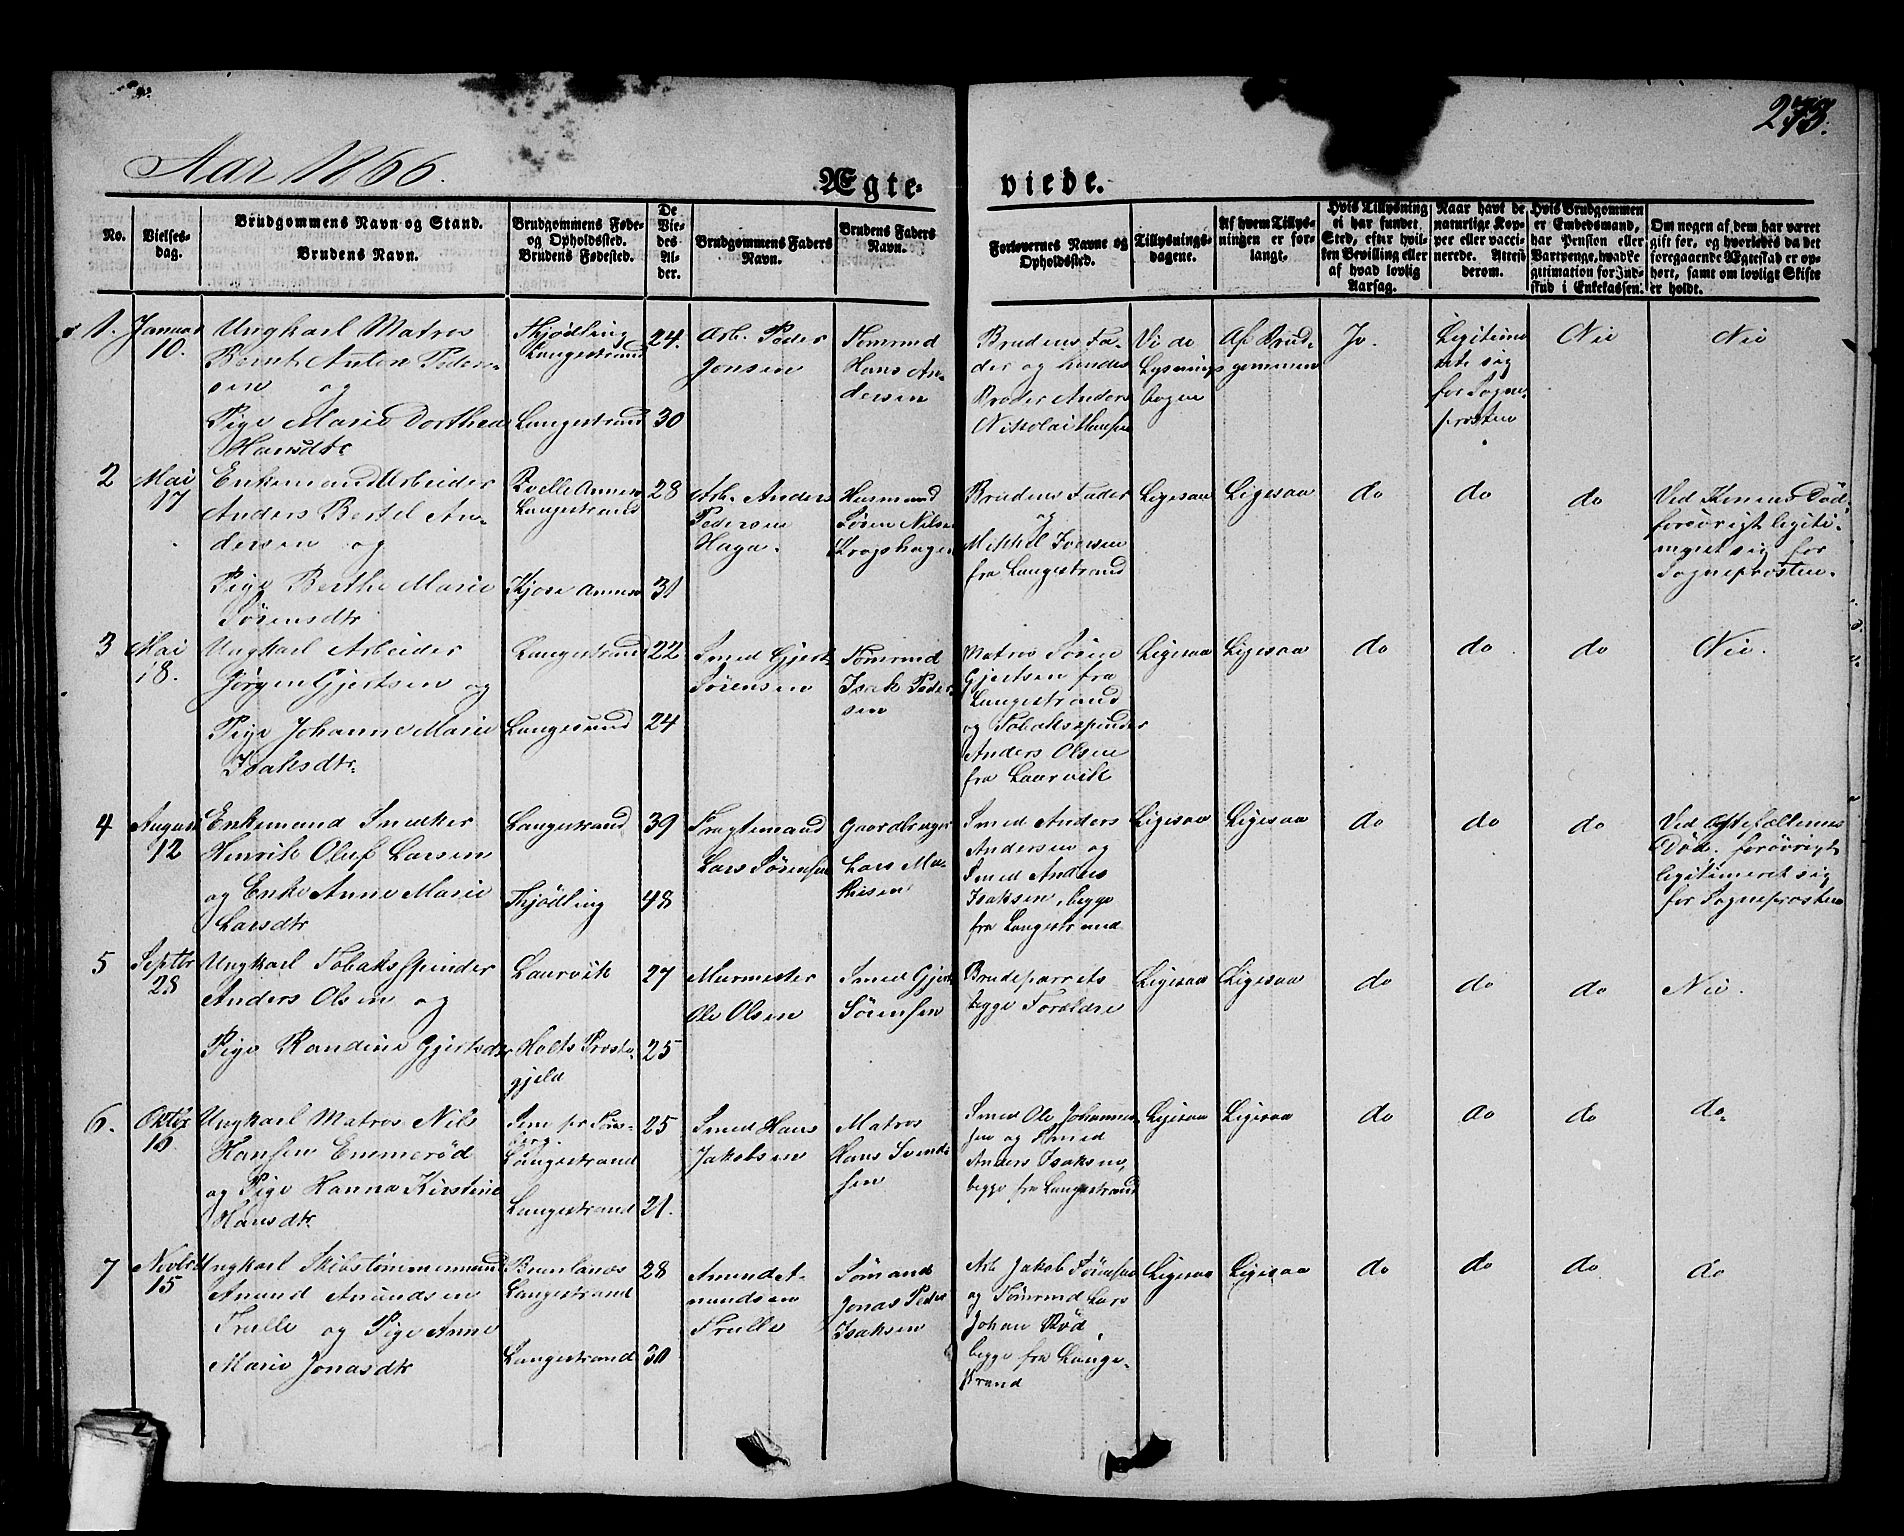 273.
Aar 1866.
Ægte-
viede.
No.
Vielses-
dag.
Brudgommens Navn og Stand.
Brudens Navn.
Brudgommens Føde-
og Opholdssted.
Brudens Fødested.
De
Vie-
des
Al-
der.
Brudgommens Faders
Navn.
Brudens Faders
Navn.
Forlovernes Navne og
Opholdssted.
Tillysnings-
dagene.
Af hvem Tillys-
ningen er for-
langt.
Hvis Tillysning
ei har fundet
Sted, efter hvil-
ken Bevilling eller
af hvad lovlig
Aarsag.
Naar havt de
naturlige Kop-
per eller vacci-
nerede. Attest
derom.
Hvis Brudgommen
er Embedsmand,
har Pension eller
Vartpenge, hvad Le-
gitimation for Ind-
skud i Enkekassen.
Om nogen af dem har været
gift før, og hvorledes da det
foregaaende Ægteskab er op-
hørt, samt om lovligt Skifte
er holdt.
1.
Januar
10.
Ungkarl Matros
Bernt Anton Peder-
sen og
Pige Marie Dorthea
Hansdtr
Thjødling
Langestrand
Langestrand
24.
30
Arb. Peder
Jensen
Tømrmd
Hans An-
dersen
Brudens Fa-
der og hendes
Broder Anders
Nikolai Hansen
Vi de
Lysnings
bogen
Af Brud-
gommen
Jo.
Legitime-
rete sig
for Sogne-
prosten
Nei
Nei
2
Mai
17
Enkemand Arbeider
Anders Bertel An-
dersen og
Pige Berthe Marie
Sørensdtr
Langestrand
Kjose Annex
28
31
Arb. Anders
Pedersen
Haga.
Husmand
Søren Nilsen
Krogshagen
Brudens Fader
og
Mikkel Iversen
fra Langestrand
Ligesaa
Ligesaa
do
do
do
Ved Konens Død,
forøvrigt legiti-
meret sig for
Sogneprosten.
3
Mai
18.
Ungkarl Arbeider
Jørgen Gjertsen og
Pige Johanne Marie
Isaksdtr
Langestrand
Langesund
22
24
Smed Gjert
Sørensen
Tømrmd
Isak Peder-
sen
Matros Søren
Gjertsen fra
Langestrand
og Tobaksspinder
Anders Olsen
fra Laurvik
Ligesaa
Ligesaa
do
do
do
Nei.
4
August
12
Enkemand Snedker
Henrik Oluf Larsen
og Enke Anne Marie
Larsdtr
Langestrand
Thjødling
39
48
Fragtemand
Lars Sørensen
Gaardbruger
Lars Ma-
thisen
Smed Anders
Andersen og
Smed Anders
Isaksen, begge
fra Langestrand
Ligesaa
Ligesaa
do
do
do
Ved Ægtefællernes
Død. forøvrigt
legitimeret sig
for Sogneprosten
5
Septbr
28
Ungkarl Tobaksspinder
Anders Olsen og
Pige Randine Gjertsdtr
Laurvik
Holts Præste-
gjeld
27
25
Murmester
Ole Olsen
Smed Gjert
Sørensen
Brudeparrets
begge Forældre
Ligesaa
Ligesaa
do
do
do
Nei.
6.
Oktbr
16
Ungkarl Matros Nils
Hansen Emmerød
og Pige Hanna Kirstine
Hansdtr
Sem pr Tøns-
berg.
Langestrand
Langestrand
25
21.
Smed Hans
Jakobsen
Matros
Hans Svend-
sen
Smed Ole Johannes-
sen og Smed
Anders Isaksen,
begge fra Langestrand
Ligesaa
Ligesaa
do
do
do
do.
7
Novbr
15
Ungkarl Skibstømmermand
Amund Amundsen
Trulle og Pige Anne
Marie Jonasdtr
Brunlanæs
Langestrand
Langestrand
28
30
Amund A-
mundsen
Trulle
Sømand
Jonas Peder
Isaksen
Arb Jakob Sørensen
og Tømrmd Lars
Johan Rød,
begge fra Lange-
strand
Ligesaa
Ligesaa
do
do
do
do